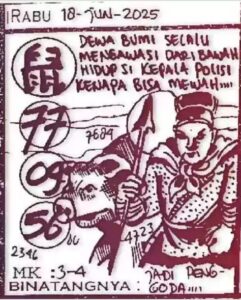 RABU 18-JUN-2025
DEWA BUMI SELALU
MENGAWASI DARI BAWAH
HIDUP SI KEPALA POLISI
KENAPA BISA MEWAH....
鼠
77
7689
09
56
86
4723
2346
JADI PENG-
GODA....
MK :3-4
BINATANGNYA :